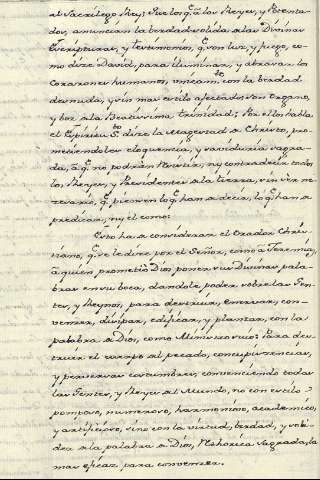 al Sacrilego Rey; Pues los q.e à los Reyes, y Potenta-
dos, anuncian la verdad evolida a las Divinas
Escripturas, y testimonios, q.e son luz, y fuego, co-
mo dize David, para iluminar, y abrazar los
Corazones humanos, unicam.te con la verdad
desnuda, y sin mas estilo afectado son Organo,
y boz, a la Beatissima trinidad; Por ellos habla
el Espiritu S.to dize la Magestad a Christo, pro-
metiendoles eloquencia, y savidurìa sagra-
da, à q.e no podràn resistir, ny contradecir todos
los Reyes, y Presidentes a la tierra, sin ser ne-
zesario, q.e piensen lo q.e han a decir, lo q.e han a
predicar, ny el como:
Esto ha a considerar el Orador Chris-
tiano, q.e se le dize por el Señor, como à Jeremias,
à quien prometiò Dios poner sus Divinas pala-
bras en su boca, dandole poder sobre las Gen-
tes, y Reynos, para destruir, enervar, con-
vencer, disipar, edificar, y plantar, con la
palabra a Dios, como Ministro suio: Para des-
truir el cuerpo al pecado, concupiscencias,
y perversas costumbres, convenciendo todas
las Gentes, y Reyes al Mundo, no con estilo
pomposo, numeroso, harmonioso, academico,
y artificioso, sino con la virtud, verdad, y soli-
dez a la palabra a Dios, Rethorica Sagrada, la
mas eficaz para convencer.